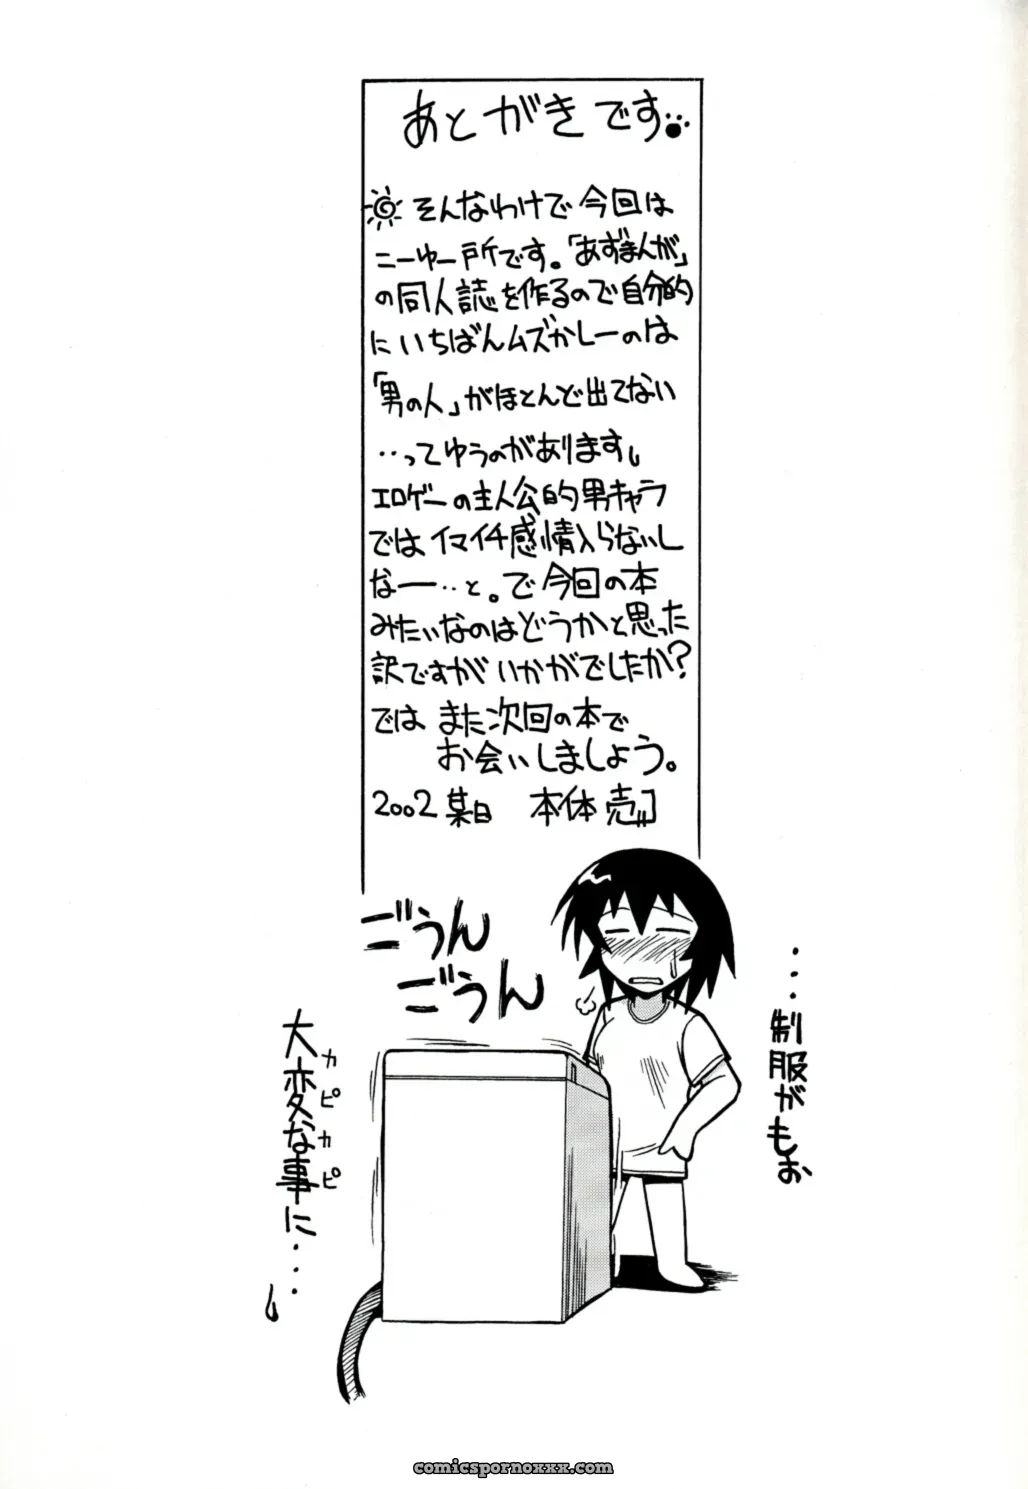 あとがきです
そんなわけで今回は
ニーゆー所です。「あずまんが」
の同人誌を作るので自分的
にいちばんムズかしーのは
「男の人」がほとんど出てない
‥ってゆうのがあります。
エロゲーの主人公的男キャラ
ではイマイチ感情入らないし
なー‥と。で今回の本
みたいなのはどうかと思った
訳ですがいかがでしたか?
では また次回の本で
お会いしましょう。
2002 某日 本体売
ごうん
ごうん
...制服がもお
大変な事に...
カピカピ
comicspornoxxx.com